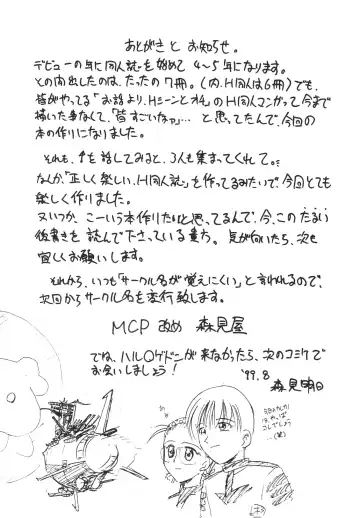 あとがき と お知らせ。
デビューの年に同人誌を始めて 4〜5年になります。
その間出したのは、たったの7冊。(内、H同人は6冊)でも、
皆がやってる「お話より、Hシーンとオチ」のH同人マンガって今まで
描いた事なくて、「皆すごいなァ…」 と思ってたんで、今回の
本の作りになりました。
それも、を話してみると、3人も集まってくれて。
なんか「正しく楽しい、H同人誌」を作ってるみたいで、今回とても
楽しく作りました。
又いつか、こーいう本作りたいと思ってるんで、今、このたるい
後書きを 読んで下さっている貴方。 気が向いたら、次も
宜しくお願いします。
それから、いつも「サークル名が覚えにくい」と言われるので、
次回からサークル名を変更致します。
MCP 改め 森見屋
でね、ハルロゲドンが来なかったら、次のコミケで
お会いしましょう!
'99.8
森見明日